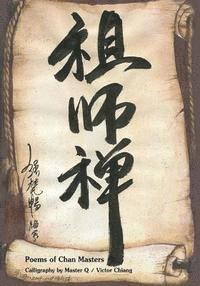 祖
师
禅
Poems of Chan Masters
Calligraphy by Master Q / Victor Chiang